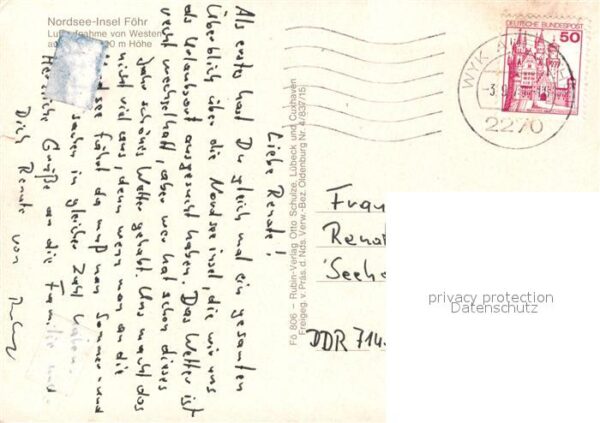 Nordsee-Insel Föhr
Luftaufnahme von Westen
m Höhe
DEUTSCHE BUNDESPOST
50
WYK A
2270
Liebe Renate!
Als erstes hast Du gleich mal ein gesamten
Überblick über die Nordseeinsel, die wir uns
als Urlaubsort ausgesucht haben. Das Wetter ist
recht wechselhaft, aber wer hat schon dieses
Jahr schönes Wetter gehabt. Uns macht das
nicht viel aus, denn wenn man an die
Nordsee fährt da muß man Sommer- und
sachen in gleicher Zahl haben.
Herzliche Grüße an die Familie und
Dich Renate von
Fö 806 – Rubin-Verlag Otto Schulze, Lübeck und Cuxhaven
Freigeg. v. Präs. d. Nds. Verw.-Bez. Oldenburg Nr. 4/837/15
Frau
Renat
Seeho
DDR 714
privacy protection
Datenschutz